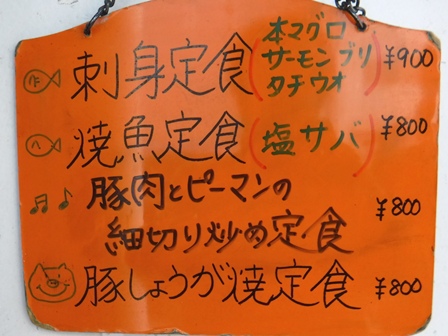 刺身定食(本マグロ サーモン ブリ タチウオ) ¥900
焼魚定食(塩サバ) ¥800
豚肉とピーマンの
細切り炒め定食 ¥800
豚しょうが焼定食 ¥800